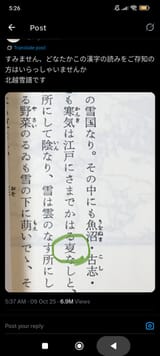 5:26
Translate post
すみません、どなたかこの漢字の読みをご存知の
方はいらっしゃいませんか
北越雪譜です
の雪国なり。その中にも魚沼・古志・
も寒気は江戸にさまでかはる夏なしと、
所にして陰なり、雪は雲のなす所にし
る野菜のるゐも雪の下に萌いで、、そ
5:37 AM · 09 Oct 25 · 6.9M Views
Post your reply